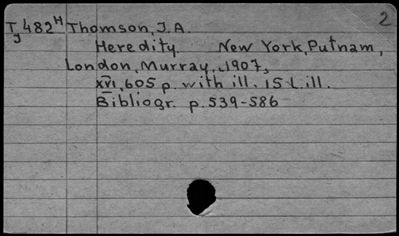 2
Tj482H Thomson, J.A.
Heredity. New York, Putnam,
London, Murray, 1907,
XVI, 605 p. with ill. 15 l. ill.
Bibliogr. p. 539-586